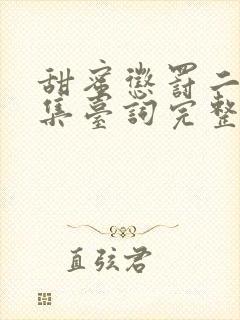 甜蜜懲罰二
集臺詞完整
直弦君